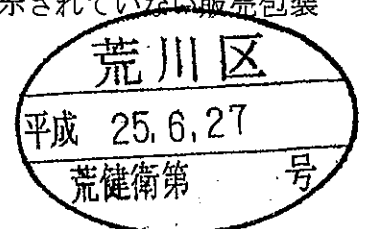 示されていない販売包装
荒川区
平成 25.6.27
荒健衛第 号